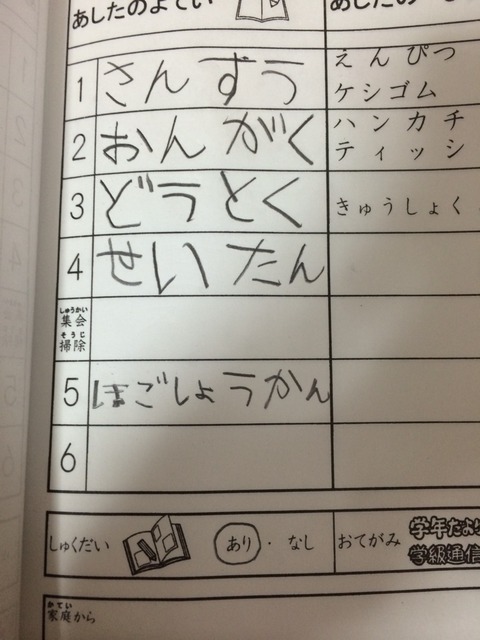 あしたのよてい
あしたの
1 さんすう えんぴつ
ケシゴム
2 おんがく ハンカチ
ティッシ
3 どうとく きゅうしょく
4 せいたん
しゅうかい
集会
そうじ
掃除
5 ほごしょうかん
6
しゅくだい あり・なし おてがみ 学年だより
学級通信
かてい
家庭から